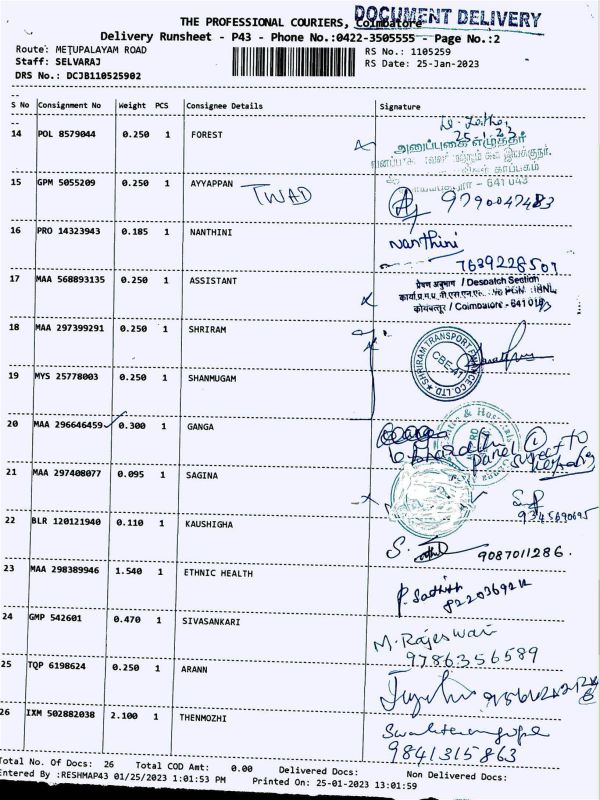 DOCUMENT DELIVERY
THE PROFESSIONAL COURIERS, Coimbatore
Delivery Runsheet - P43 - Phone No.:0422-3505555 - Page No.:2
Route: METUPALAYAM ROAD
RS No.: 1105259
Staff: SELVARAJ
RS Date: 25-Jan-2023
DRS No.: DCJB110525902
S No Consignment No Weight PCS Consignee Details Signature
14 POL 8579044 0.250 1 FOREST
25-1-23
அனுப்புகை எழுத்தர்
641 043
15 GPM 5055209 0.250 1 AYYAPPAN TWAD
9790047483
16 PRO 14323943 0.185 1 NANTHINI Nanthini
7639228507
17 MAA 568893135 0.250 1 ASSISTANT
प्रेषण अनुभाग / Despatch Section
कोयंबत्तूर / Coimbatore - 641 043
18 MAA 297399291 0.250 1 SHRIRAM
SHRIRAM TRANSPORT FINANCE CO. LTD.
CBE-41
19 MYS 25778003 0.250 1 SHANMUGAM
20 MAA 296646459 0.300 1 GANGA
21 MAA 297408077 0.095 1 SAGINA
9345690695
22 BLR 120121940 0.110 1 KAUSHIGHA
S. 9087011286.
23 MAA 298389946 1.540 1 ETHNIC HEALTH
P. Sathish
24 GMP 542601 0.470 1 SIVASANKARI
M. Rajeswari
9786356589
25 TQP 6198624 0.250 1 ARANN
26 IXM 502882038 2.100 1 THENMOZHI
9841315863
Total No. Of Docs: 26 Total COD Amt: 0.00 Delivered Docs: Non Delivered Docs:
Entered By :RESHMAP43 01/25/2023 1:01:53 PM Printed On: 25-01-2023 13:01:59